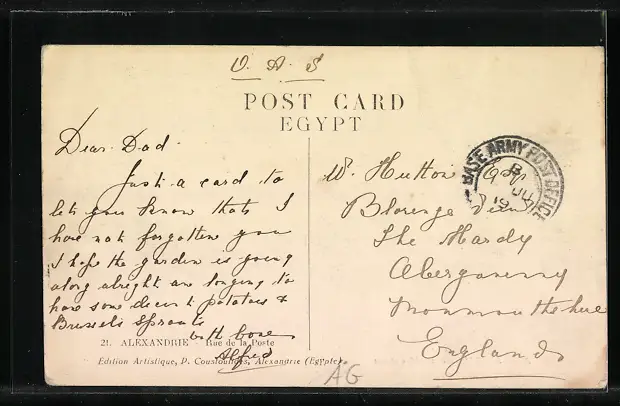 O. A. S
POST CARD
EGYPT
Dear Dad.
Just a card to
let you know that I
have not forgotten you
I hope the garden is going
along alright are longing to
have some decent potatoes &
Brussels Sprouts
with love
Alfred
W. Hutton Esq
Blorenge View
The Hardy
Abergavenny
Monmouthshire
England
BASE ARMY POST OFFICE
B
JU
19
21. ALEXANDRIE - Rue de la Poste
Edition Artistique, P. Coustoulides, Alexandrie (Egypte)
AG